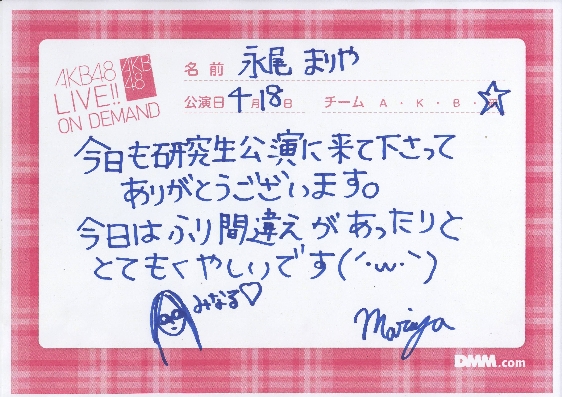 AKB48
LIVE!!
ON DEMAND
AKB
48
名前 永尾 まりや
公演日 4月18日 チーム A・K・B・
今日も研究生公演に来て下さって
ありがとうございます。
今日はふり間違えがあったりと
とてもくやしいです(´・ω・`)
みなる♡
Mariya
DMM.com